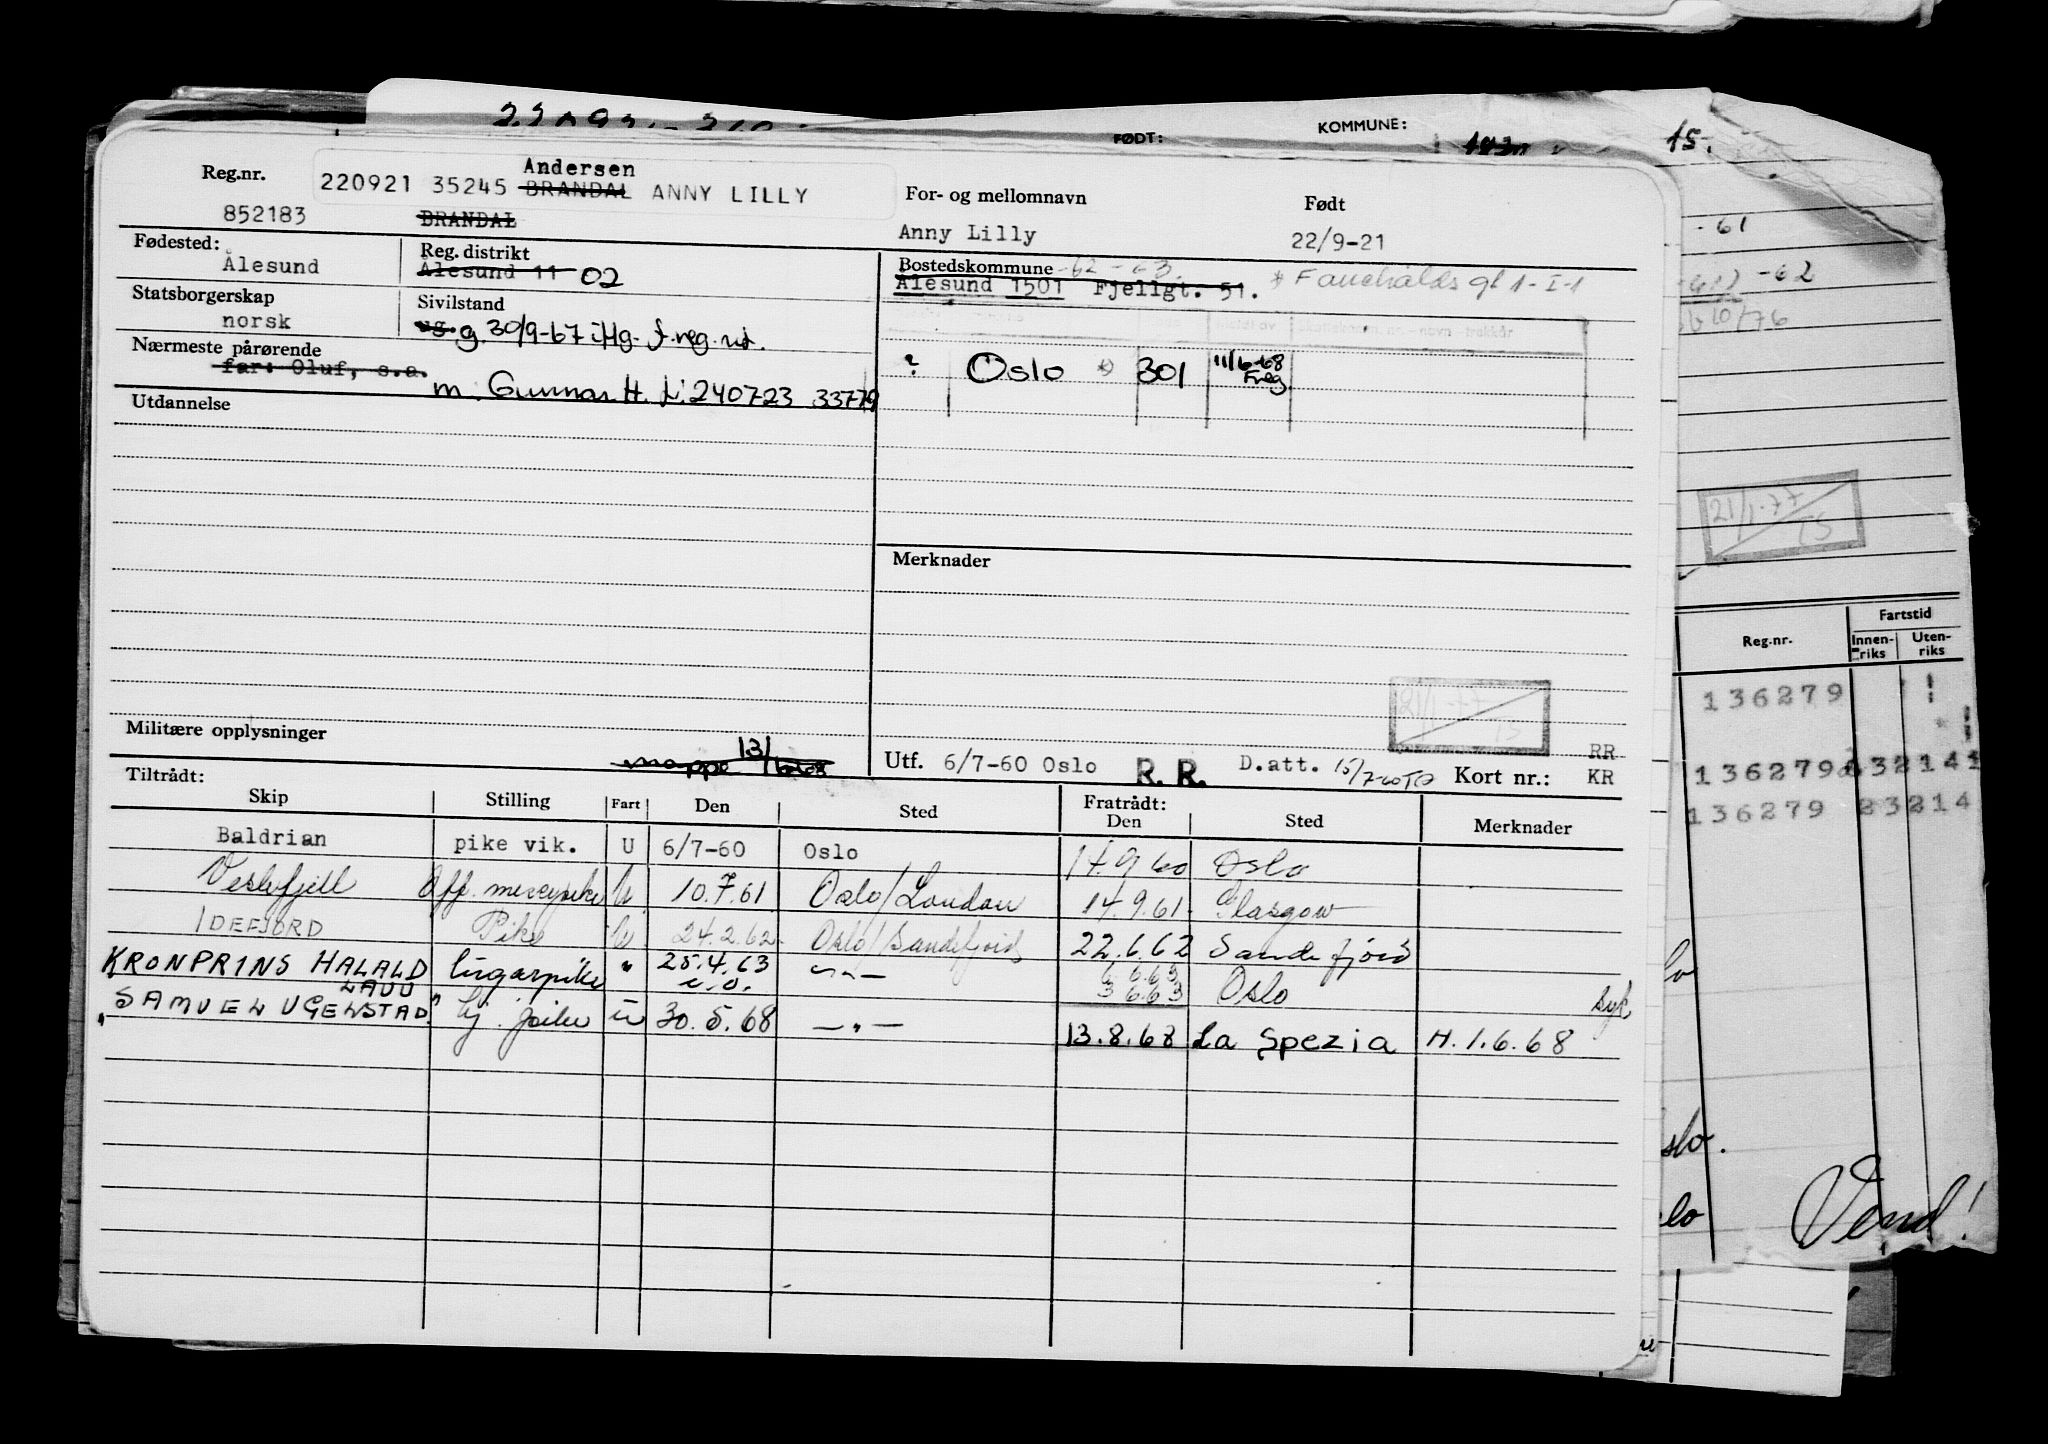 FØDT:
KOMMUNE:
15.
Andersen
Reg.nr.
220921 35245 BRANDAL ANNY LILLY
852183
BRANDAL
For- og mellomnavn
Født
Anny Lilly
22/9-21
Fødested:
Ålesund
Reg. distrikt
Ålesund 11 02
Bostedskommune -62-63.
Ålesund 1501 Fjellgt. 51.
Statsborgerskap
norsk
Sivilstand
ug. g. 30/9-67 iflg. f.reg.
Nærmeste pårørende
far: Oluf, s.a.
m. Gunnar H. f. 240723 33779
? Oslo 301 11/6-68
Freg
Utdannelse
Merknader
21/1-77
TS
Militære opplysninger
mappe 13/6-68
Utf. 6/7-60 Oslo R. R. D.att. 15/7-60 Kort nr.: RR
KR
Tiltrådt:
Skip Stilling Fart Den Sted
Fratrådt:
Den Sted Merknader
Baldrian pike vik. U 6/7-60 Oslo 17.9.60 Oslo
Veslefjell Off. messepike U 10.7.61 Oslo/London 14.9.61 Glasgow
IDEFJORD Pike U 24.2.62 Oslo/Sandefjord 22.6.62 Sandefjord
KRONPRINS HALALD lugarpike " 25.4.63 —"— 6.6.63
u.o. 3 6.63 Oslo syk
LAUU
"SAMUEL UGELSTAD" bj. pike u 30.5.68 —"— 13.8.68 La Spezia H. 1.6.68
-61
-62
10/76
21/1-77
TS
Fartstid
Reg-nr.
Innen-
riks
Uten-
riks
136279
136279
136279 23214
slo.
lo
Vend!